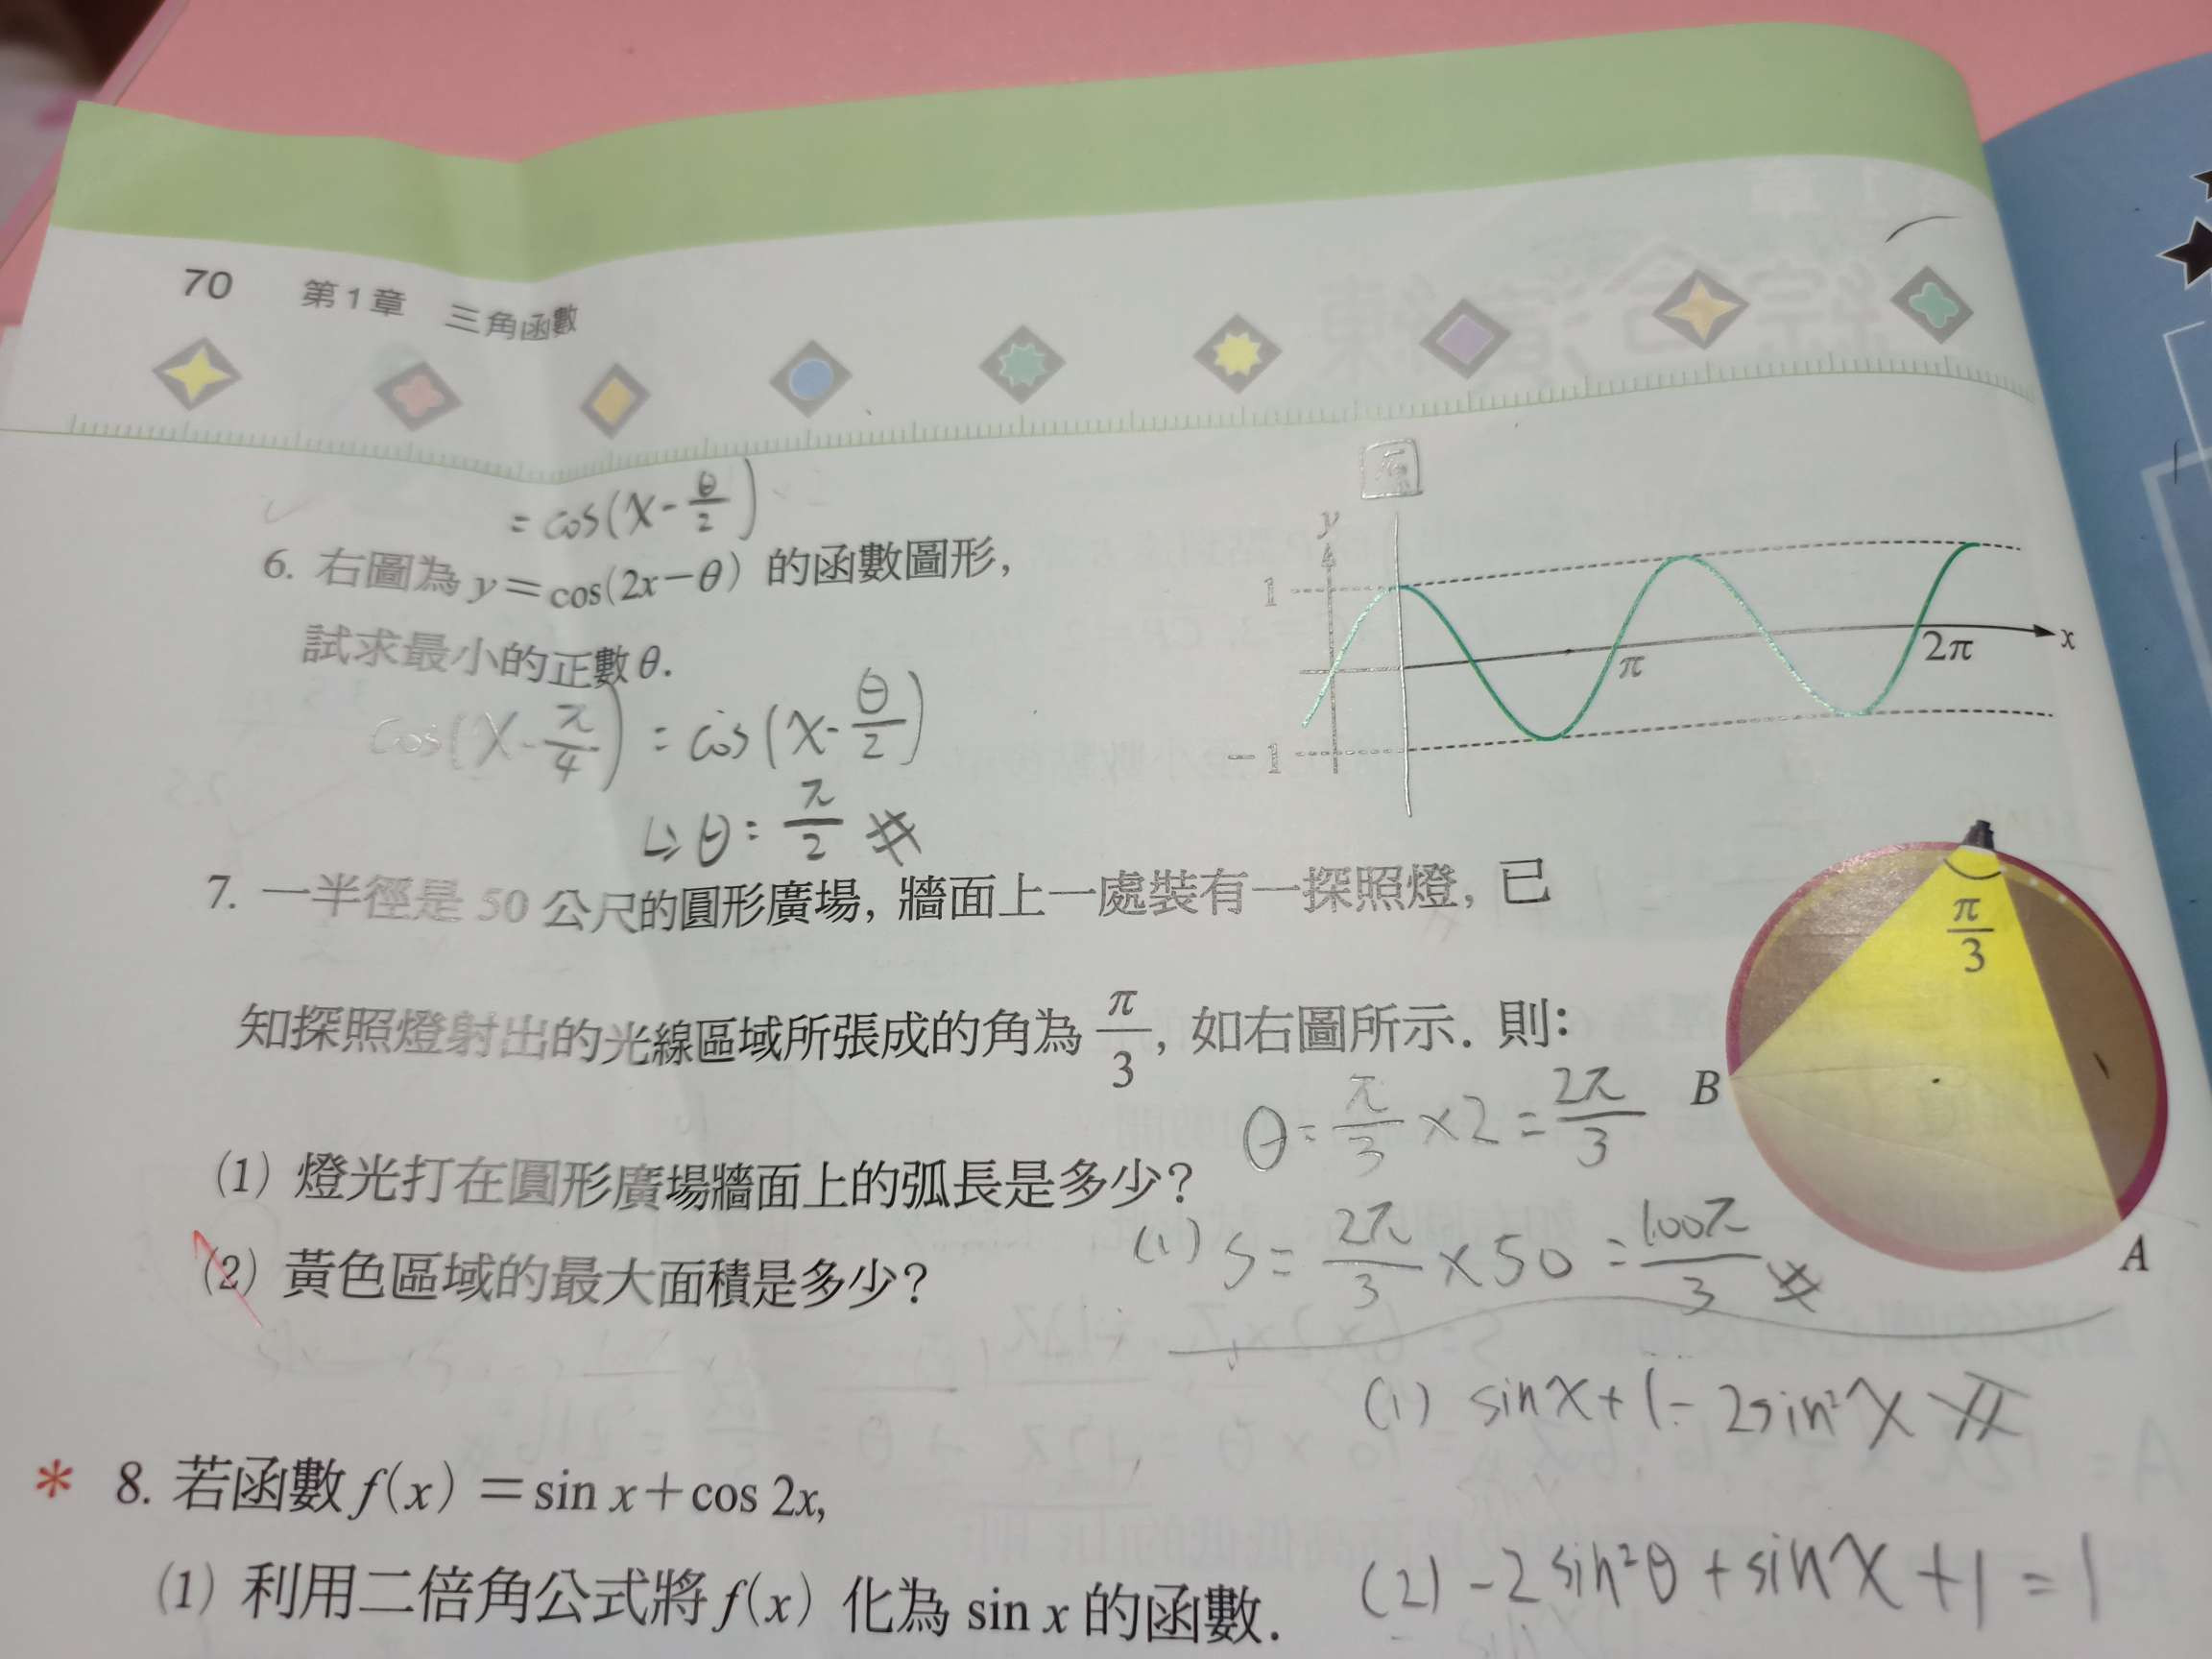 70 第1章 三角函數
= cos(x-θ/2)
6. 右圖為 y=cos(2x-θ) 的函數圖形,
試求最小的正數θ.
cos(x-π/4) = cos(x-θ/2)
↳ θ=π/2 #
右
y
1
-1
π
2π
x
7. 一半徑是 50 公尺的圓形廣場, 牆面上一處裝有一探照燈, 已
知探照燈射出的光線區域所張成的角為 π/3, 如右圖所示. 則:
π/3
B
A
θ=π/3×2=2π/3
(1) 燈光打在圓形廣場牆面上的弧長是多少?
(1) S=2π/3×50=100π/3 #
(2) 黃色區域的最大面積是多少?
(1) sinx+1-2sin²x #
* 8. 若函數 f(x)=sin x+cos 2x,
(1) 利用二倍角公式將 f(x) 化為 sin x 的函數.
(2) -2sin²θ+sinx+1=1